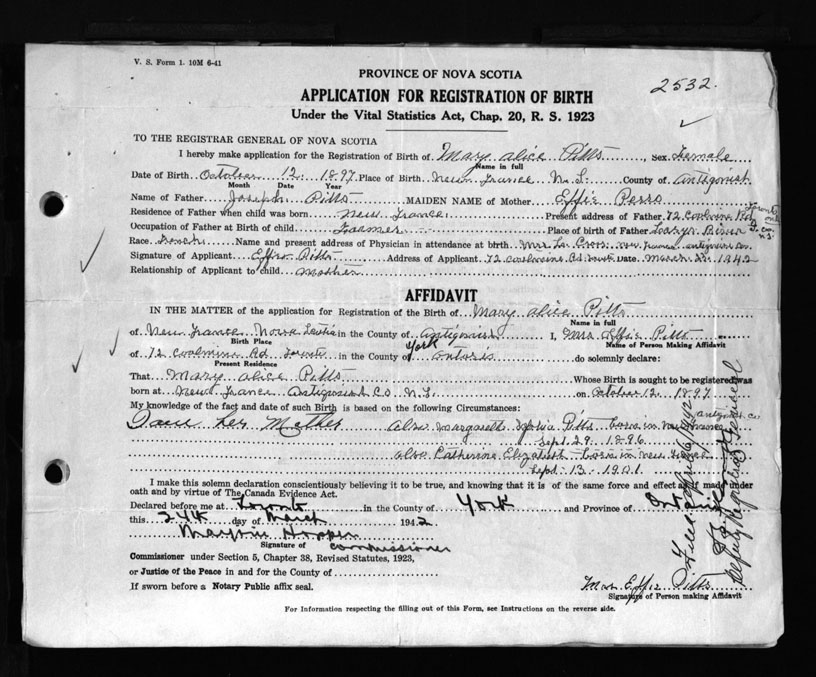 V. S. Form 1. 10M 6-41
PROVINCE OF NOVA SCOTIA
2532.
APPLICATION FOR REGISTRATION OF BIRTH
Under the Vital Statistics Act, Chap. 20, R. S. 1923
TO THE REGISTRAR GENERAL OF NOVA SCOTIA
I hereby make application for the Registration of Birth of Mary Alice Pitts, Sex Female
Name in full
Date of Birth October 12 1897 Place of Birth New France N.S. County of Antigonish
Month Date Year
Name of Father Joseph Pitts MAIDEN NAME of Mother Effie
Residence of Father when child was born New France Present address of Father 72 Rd Toronto Ont
Occupation of Father at Birth of child Farmer Place of birth of Father River
Race Name and present address of Physician in attendance at birth Mrs La New France Antigonish Co.
Signature of Applicant Effie Pitts Address of Applicant 72 Rd Date March 1942
Relationship of Applicant to child Mother
AFFIDAVIT
IN THE MATTER of the application for Registration of the Birth of Mary Alice Pitts
Name in full
of New France Nova Scotia in the County of Antigonish I, Mrs Effie Pitts
Birth Place Name of Person Making Affidavit
of 72 Rd Toronto in the County of York Ontario do solemnly declare:
Present Residence
That Mary Alice Pitts Whose Birth is sought to be registered was
born at New France Antigonish Co N.S. on October 12 1897
My knowledge of the fact and date of such Birth is based on the following Circumstances: Antigonish Co
I am her Mother also Margaret Pitts born in New France
Sept 29 1896
also Catherine Elizabeth born in New France
Sept 13 1901
I make this solemn declaration conscientiously believing it to be true, and knowing that it is of the same force and effect as made under
oath and by virtue of The Canada Evidence Act.
Declared before me at Toronto in the County of York and Province of Ont
this 24th day of March 1942
Marjorie Hopper
Signature of commissioner
Commissioner under Section 5, Chapter 38, Revised Statutes, 1923,
or Justice of the Peace in and for the County of
If sworn before a Notary Public affix seal.
Mrs Effie Pitts
Signature of Person making Affidavit
For Information respecting the filling out of this Form, see Instructions on the reverse side.
Filed
Deputy Registrar General